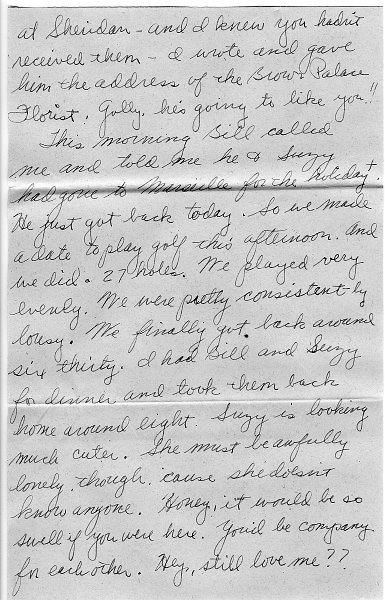 at Sheridan - and I knew you hadn't
received them - I wrote and gave
him the address of the Brown Palace
Florist. Golly, he's going to like you!!
This morning Bill called
me and told me he & Suzy
had gone to Marseille for the holiday.
He just got back today. So we made
a date to play golf this afternoon. And
we did. 27 holes. We played very
evenly. We were pretty consistent-ly
lousy. We finally got back around
six thirty. I had Bill and Suzy
for dinner and took them back
home around eight. Suzy is looking
much cuter. She must be awfully
lonely though 'cause she doesn't
know anyone. Honey, it would be so
swell if you were here. You'd be company
for each other. Hey, still love me??